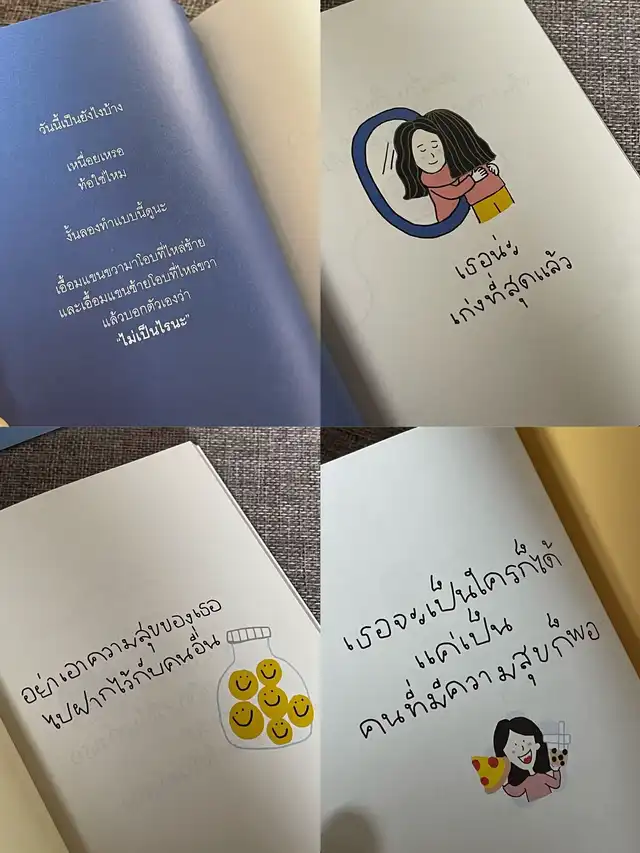 วันนี้เป็นยังไงบ้าง
เหนื่อยเหรอ
ท้อใช่ไหม
งั้นลองทำแบบนี้ดูนะ
เอื้อมแขนขวามาโอบที่ไหล่ซ้าย
และเอื้อมแขนซ้ายโอบที่ไหล่ขวา
แล้วบอกตัวเองว่า
"ไม่เป็นไรนะ"
เธอน่ะ
เก่งที่สุดแล้ว
อย่าเอาความสุขของเธอ
ไปฝากไว้กับคนอื่น
เธอจะเป็นใครก็ได้
แค่เป็น
คนที่มีความสุขก็พอ